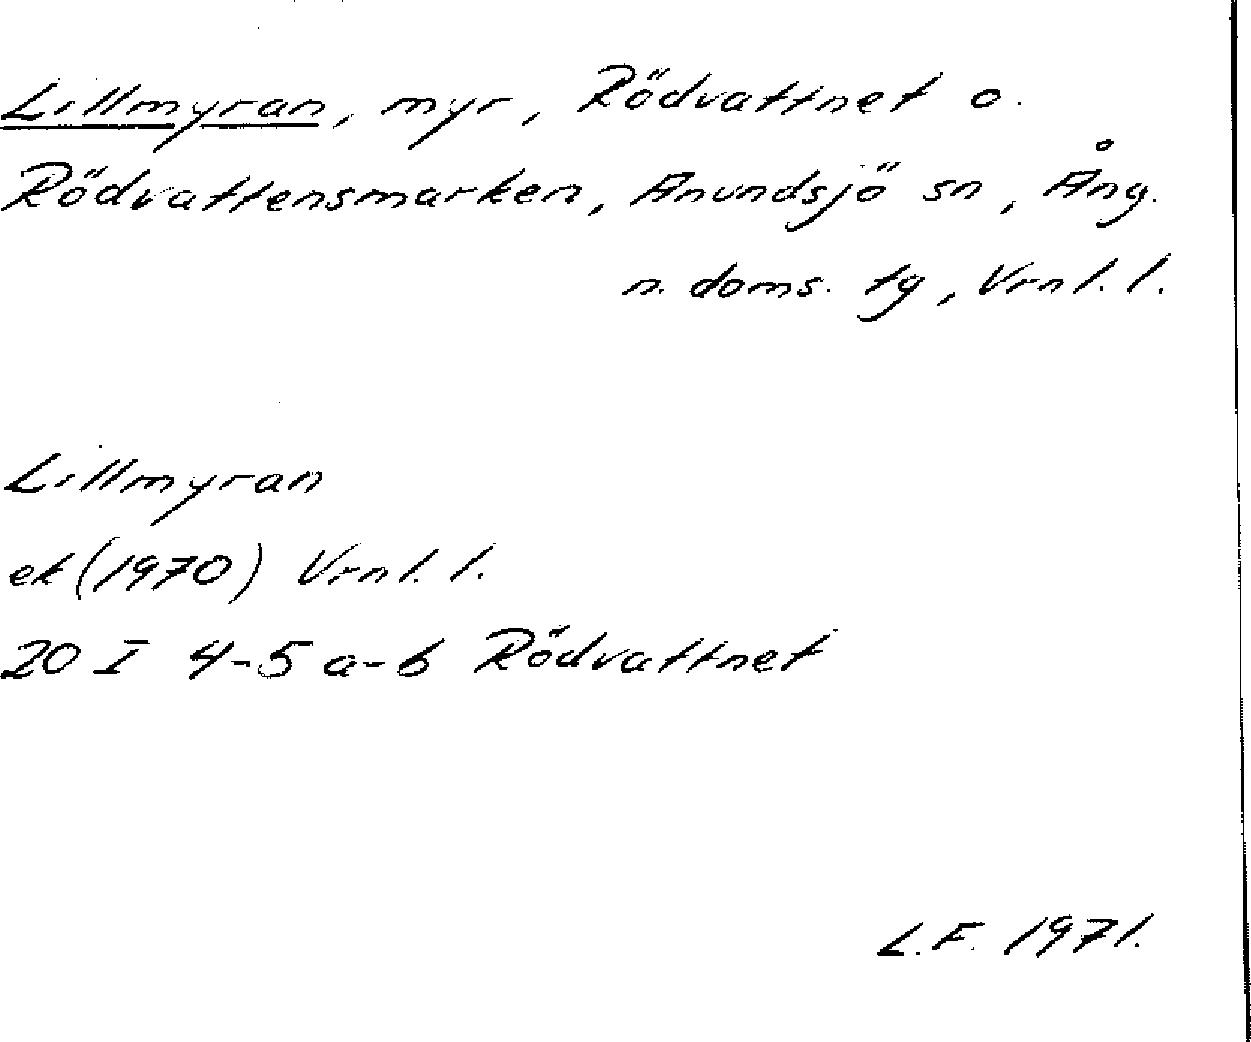 Lillmyran, myr, Rödvattnet o.
Rödvattensmarken, Anundsjö sn, Ång.
n. doms. tg, Vrnl. l.
Lillmyran
ek (1970) Vrnl. l.
20 I 4-5 a-b Rödvattnet
L.F. 1971.